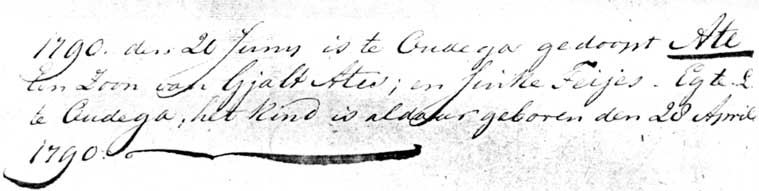 1790. den 20 Juny is te Oudega gedoopt Ate
Een Zoon van Gjalt Ates; en Jinke Feijes. Egte L.
te Oudega, het kind is aldaar geboren den 28 April
1790.